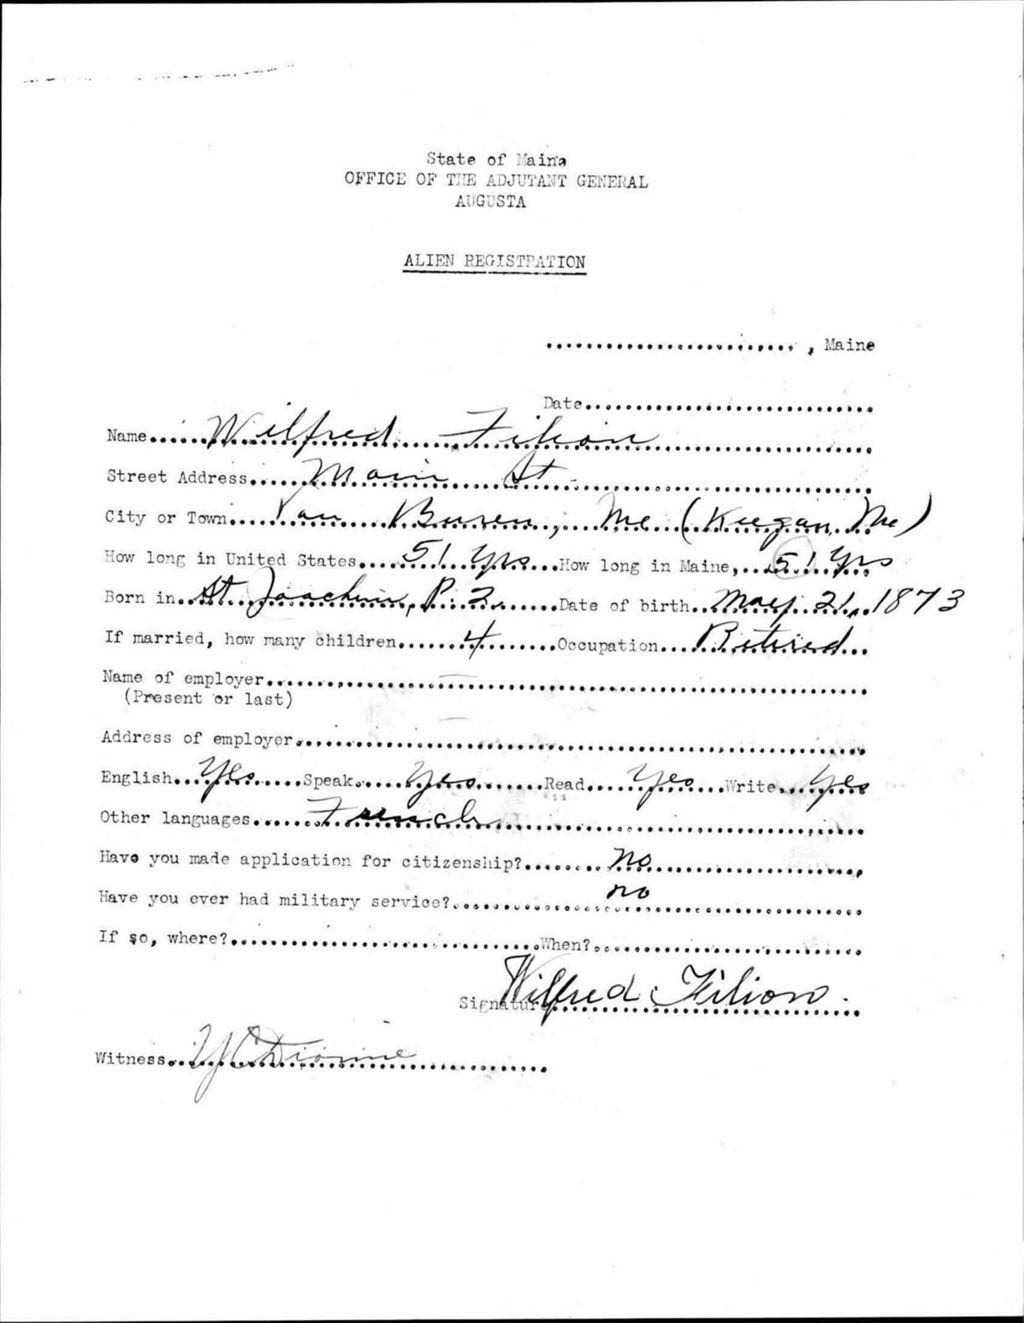 State of Maine
OFFICE OF THE ADJUTANT GENERAL
AUGUSTA
ALIEN REGISTRATION
........................, Maine
Date............................
Name......Wilfred Filion....................
Street Address.....Main St.............................
City or Town....Van Buren, Me (Keegan, Me)
How long in United States....51 yrs...How long in Maine,...51 yrs
Born in..St. Joachim, P. Q.......Date of birth..May 21, 1873
If married, how many children.......4........Occupation....Retired...
Name of employer............................................................
(Present or last)
Address of employer.........................................................
English...Yes.....Speak.....yes.......Read.....yes...Write....yes
Other languages......French....................................
Have you made application for citizenship?........no.....................
Have you ever had military service?...............no.....................
If so, where?...............................When?..........................
Signature Wilfred Filion.
Witness.. Dionne................